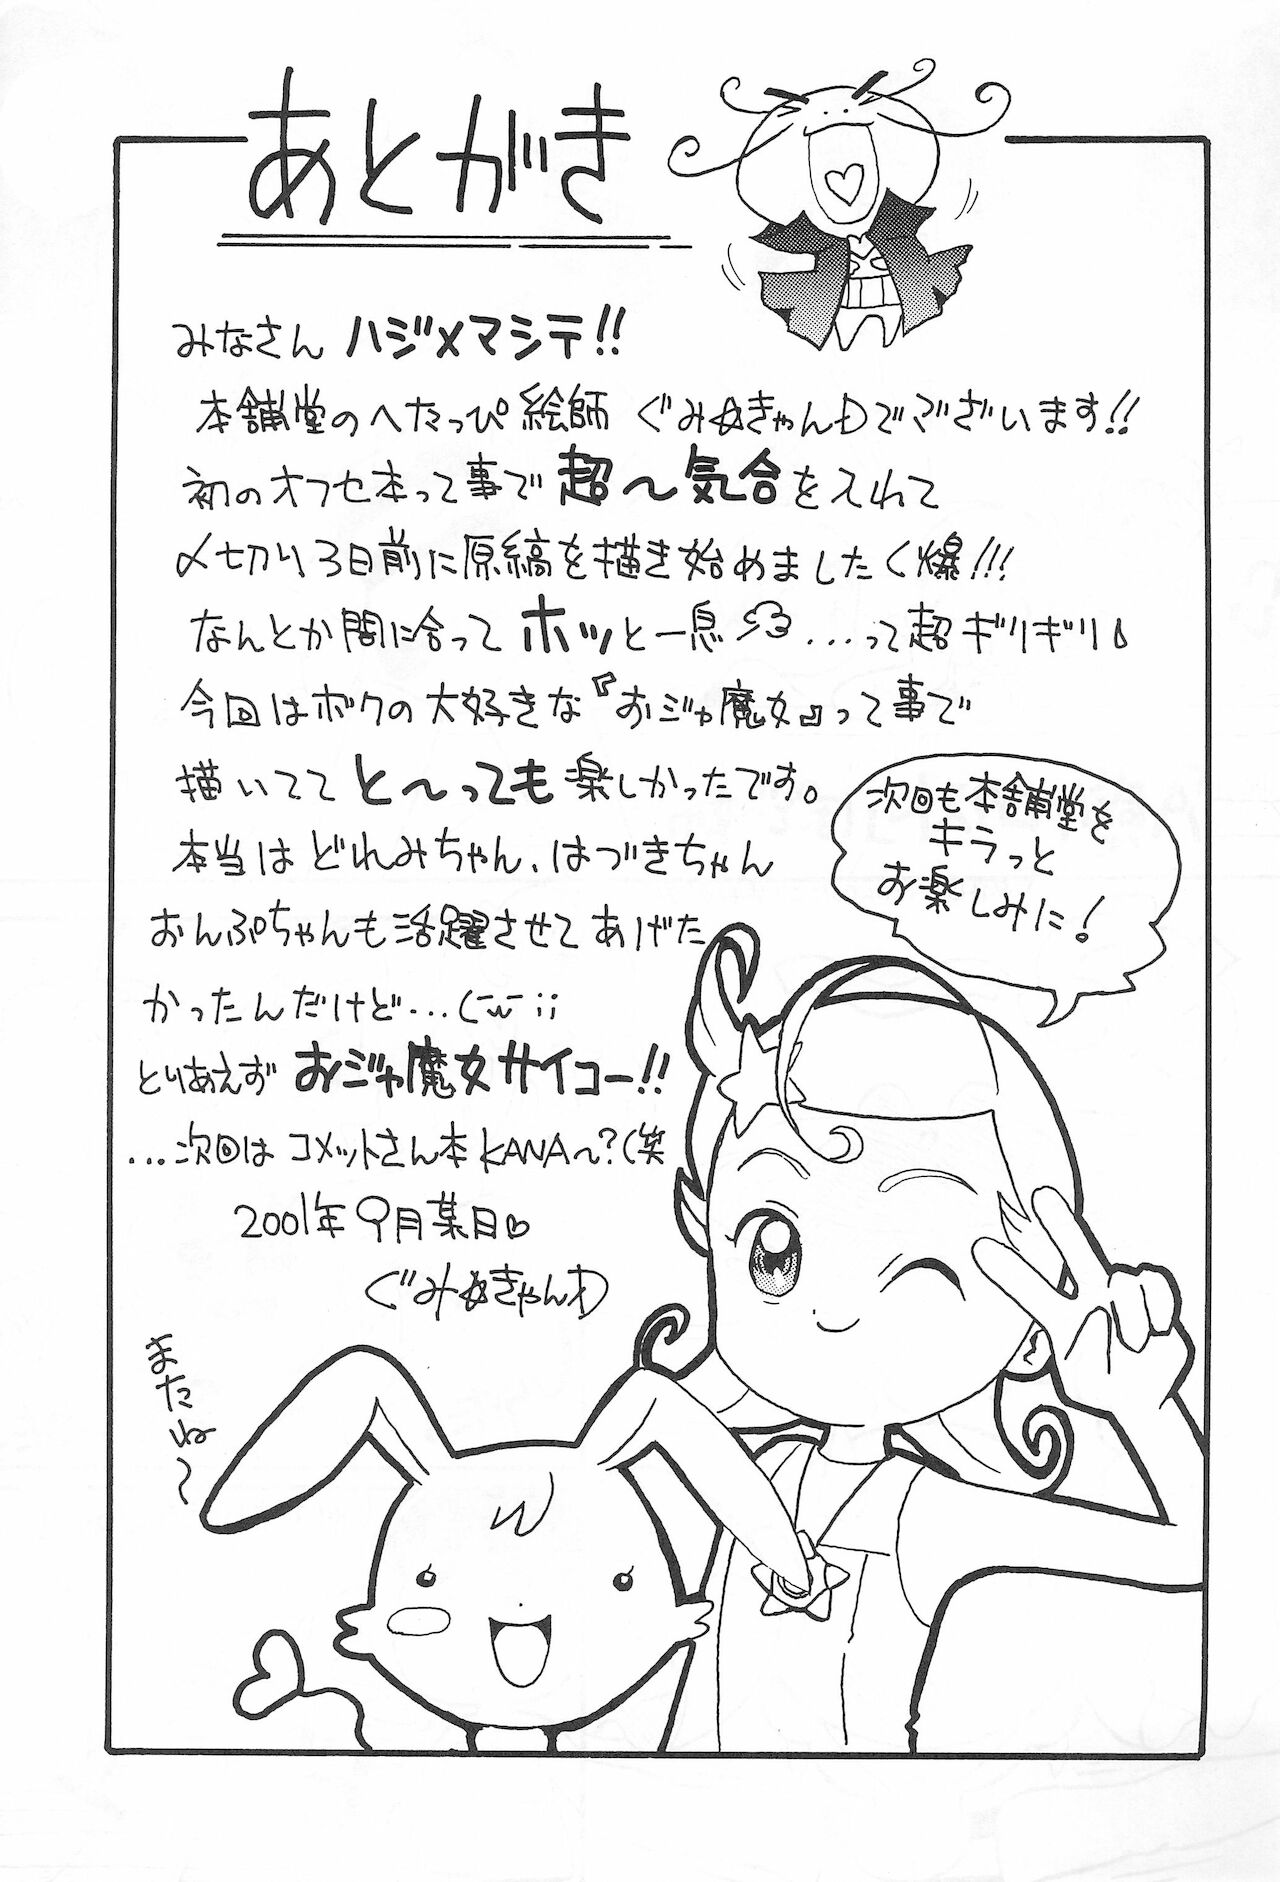 あとがき
みなさん ハジメマシテ!!
本舗堂のへたっぴ絵師 ぐみ☆きゃんDでございます!!
初のオフセ本って事で 超〜気合を入れて
〆切り3日前に原稿を描き始めました(爆!!!
なんとか間に合って ホッと一息...って超ギリギリ
今回はボクの大好きな『おジャ魔女』って事で
描いてて と〜っても 楽しかったです。
本当は どれみちゃん、はづきちゃん
おんぷちゃんも活躍させてあげた
かったんだけど...(-w-;;
とりあえず おジャ魔女サイコー!!
...次回は コメットさん本KANA〜?(笑
2001年9月某日♡
ぐみ☆きゃんD
次回も本舗堂を
キラっと
お楽しみに!
またね〜